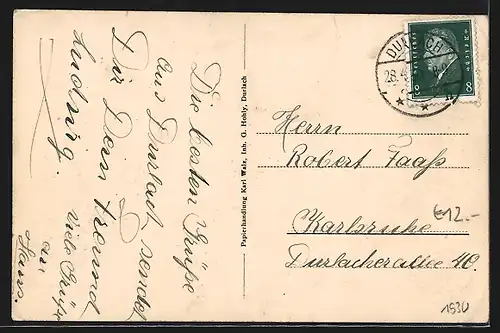 Die besten Grüße
aus Durlach sendet
Dir Dein Freund
Ludwig.
Viele Grüße
an
Hans.
Papierhandlung Karl Walz, Inh. G. Hohly, Durlach
DURLACH
28.4.
Deutsches Reich
8 8
Herrn
Robert Faaß
Karlsruhe
Durlacherallee 40.
€12.-
1930